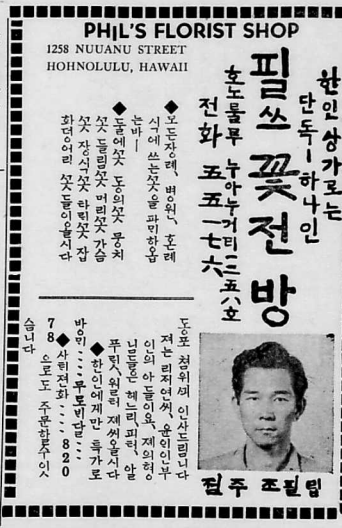 PHIL'S FLORIST SHOP
1258 NUUANU STREET
HOHNOLULU, HAWAII
한인상가로는
단독一하나인
필쓰 꽃전방
호노룰루 누아누거리一二五八호
전화 五五一七六
◆모든장례, 병원, 혼례
식에 쓰는꽃을 파민하옵
는바ㅡ
◆둘에꽃 동의꽃 뭉치
꽃 들림꽃 머리꽃 가슴
꽃 장식꽃 타린꽃 잡
화덩어리 꽃들이올시다
동포 쳠위께 인사드립니다
져는 리저연씨, 윤인인부
인의 아들이요, 제의형
님들은 헤느리, 피터, 알
푸린, 워르러 제씨올시다
◆한인에게만 특가로
방미....무도비달....
◆사틱젼화....820
78 으로도 주문하실수잇
습니다
점주 조필립